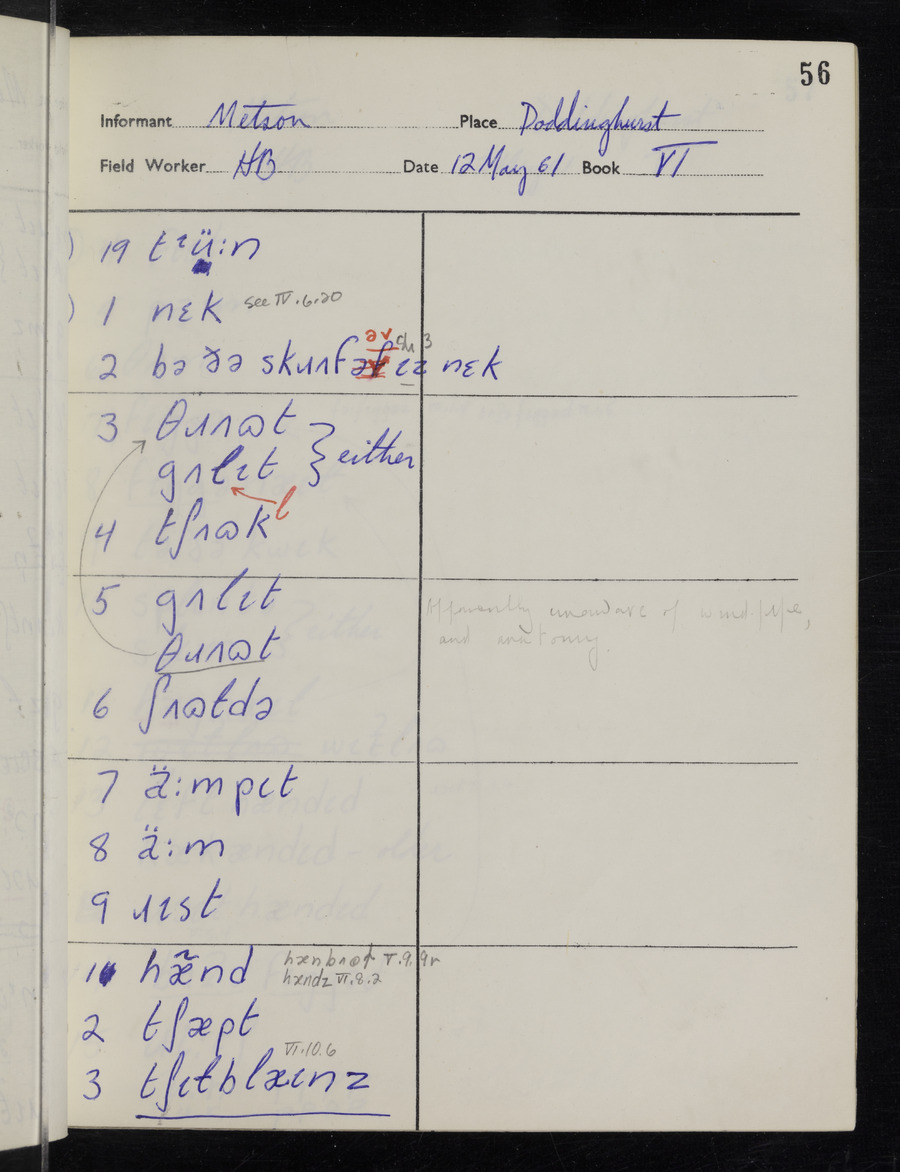 56
Informant Metson Place Doddinghurst
Field Worker HB Date 12 May 61 Book VI
) 19 tᶻü:n
) 1 nɛk see IV.6.20
əv
2 bə ðə skɹʌf ɪz nɛk
3 θɹʌɷt
gʌlɪt } either
l
4 tʃʌɷk
5 gʌlɪt
θɹʌɷt
Apparently unaware of wind-pipe,
and anatomy.
6 ʃʌɷldə
7 ä:mpɪt
8 ä:m
9 ɹɪst
1 hæ̃nd hænbʌɷɫ V.9.9r
hændz VI.8.2
2 tʃæpt
VI.10.6
3 tʃɪɫblæɪnz